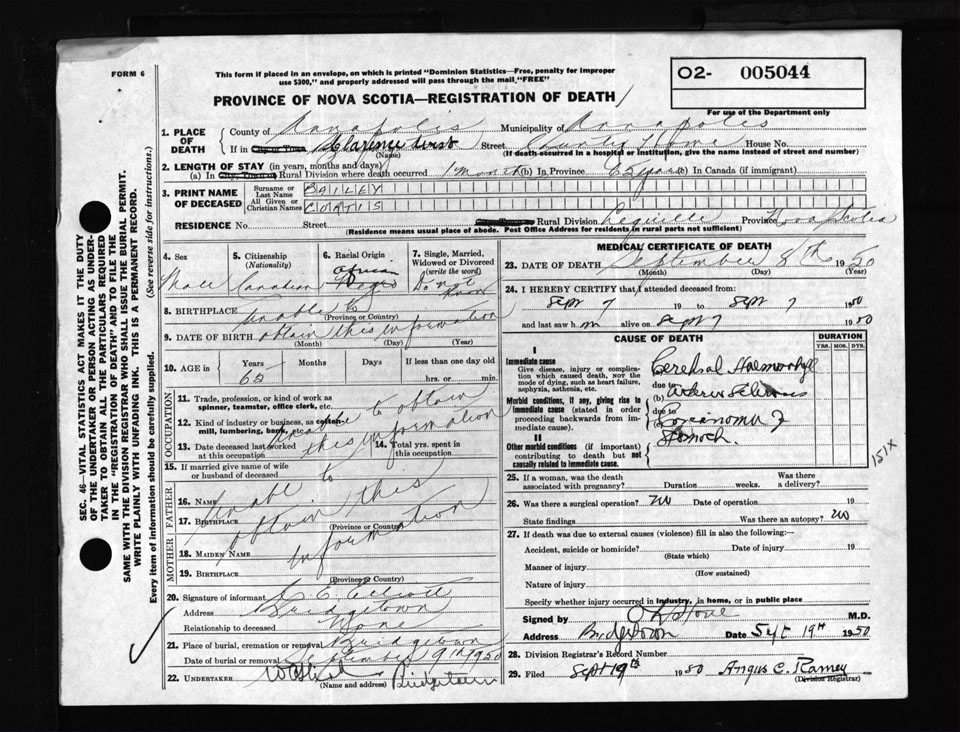 FORM 6
This form if placed in an envelope, on which is printed "Dominion Statistics—Free, penalty for improper
use $300," and properly addressed will pass through the mail "FREE"
O2- 005044
For use of the Department only
PROVINCE OF NOVA SCOTIA—REGISTRATION OF DEATH
1. PLACE OF DEATH
County of Annapolis Municipality of Annapolis
If in Clarence West Street County Home House No.
(Name) (If death occurred in a hospital or institution, give the name instead of street and number)
2. LENGTH OF STAY (in years, months and days)
(a) In City, Town or Rural Division where death occurred 1 Month (b) In Province 62 years (c) In Canada (if immigrant)
3. PRINT NAME OF DECEASED
Surname or Last Name BAILEY
All Given or Christian Names CURTIS
RESIDENCE No. Street Rural Division Lequille Province Nova Scotia
(Residence means usual place of abode. Post Office Address for Residents in rural parts not sufficient)
4. Sex
Male
5. Citizenship (Nationality)
Canadian
6. Racial Origin
African
Negro
7. Single, Married, Widowed or Divorced (write the word)
Do not Know
8. BIRTHPLACE Unable to
(Province or Country)
9. DATE OF BIRTH obtain this information
(Month) (Day) (Year)
10. AGE in Years Months Days If less than one day old
62 hrs. or min.
OCCUPATION
11. Trade, profession, or kind of work as spinner, teamster, office clerk, etc.
12. Kind of industry or business, as cotton-mill, lumbering, bank,
Unable to obtain
13. Date deceased last worked at this occupation
this information
14. Total yrs. spent in this occupation
15. If married give name of wife or husband of deceased
FATHER
16. NAME Unable to
17. BIRTHPLACE obtain this
(Province or Country)
MOTHER
18. MAIDEN NAME information
19. BIRTHPLACE
(Province or Country)
20. Signature of informant C. E. Elliott
Address Bridgetown
Relationship to deceased None
21. Place of burial, cremation or removal Bridgetown
Date of burial or removal September 9th 1950
22. UNDERTAKER Bridgetown
(Name and address)
MEDICAL CERTIFICATE OF DEATH
23. DATE OF DEATH September 8th 1950
(Month) (Day) (Year)
24. I HEREBY CERTIFY that I attended deceased from:
Sept 7 19 to Sept 7 1950
and last saw him alive on Sept 7 1950
CAUSE OF DEATH DURATION
YRS. MOS. DYS.
I
Immediate cause
Give disease, injury or complication which caused death, not the mode of dying, such as heart failure, asphyxia, asthenia, etc.
Cerebral Haemorrhage
due to
Morbid conditions, if any, giving rise to immediate cause (stated in order proceeding backwards from immediate cause).
(b) Arterio Sclerosis
due to
Carcinoma of
Stomach.
II
Other morbid conditions (if important) contributing to death but not causally related to immediate cause.
151X
25. If a woman, was the death associated with pregnancy? Duration weeks. Was there a delivery?
26. Was there a surgical operation? no Date of operation 19
State findings Was there an autopsy? no
27. If death was due to external causes (violence) fill in also the following:—
Accident, suicide or homicide? Date of injury 19
(State which)
Manner of injury
(How sustained)
Nature of injury
Specify whether injury occurred in industry, in home, or in public place
Signed by M.D.
Address Bridgetown Date Sept 19th 1950
28. Division Registrar's Record Number
29. Filed Sept 19th 1950 Angus C. Ramey
(Division Registrar)
SEC. 46—VITAL STATISTICS ACT MAKES IT THE DUTY
OF THE UNDERTAKER OR PERSON ACTING AS UNDERTAKER
TO OBTAIN ALL THE PARTICULARS REQUIRED
IN THE "REGISTRATION OF DEATH" AND TO FILE THE
SAME WITH THE DIVISION REGISTRAR WHO SHALL ISSUE THE BURIAL PERMIT.
WRITE PLAINLY WITH UNFADING INK. THIS IS A PERMANENT RECORD.
Every item of information should be carefully supplied. (See reverse side for instructions.)